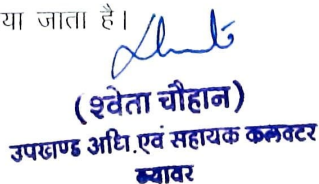 या जाता है।
(श्वेता चौहान)
उपखण्ड अधि.एवं सहायक कलक्टर
ब्यावर